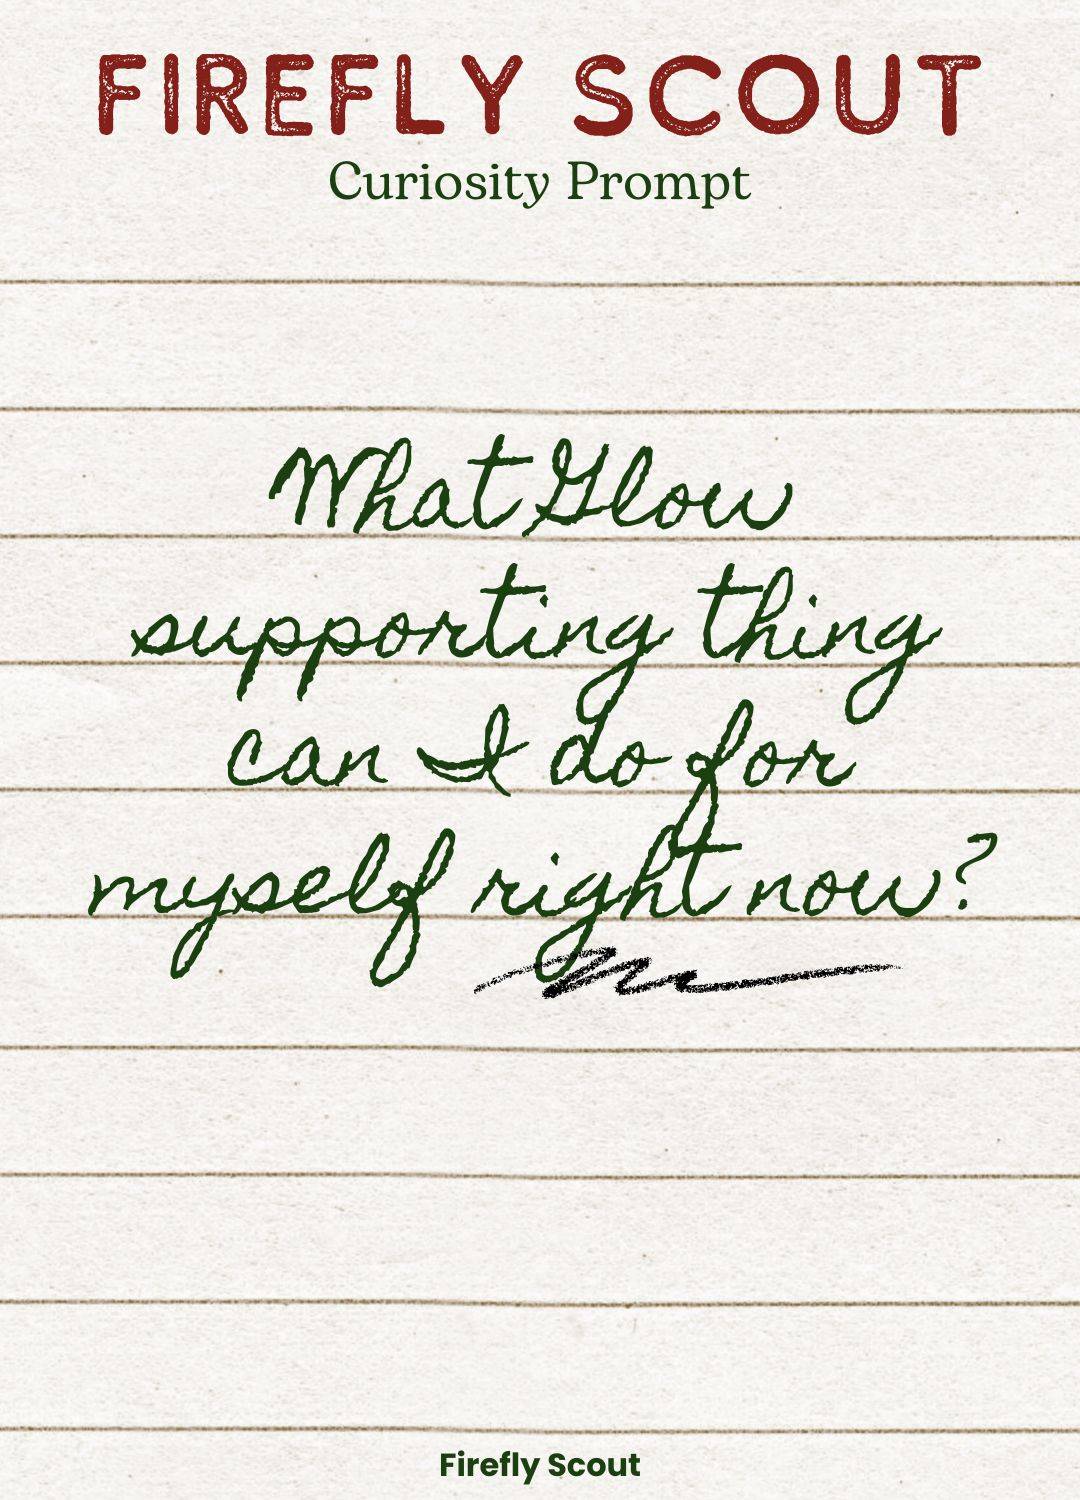 FIREFLY SCOUT
Curiosity Prompt
What Glow
supporting thing
can I do for
myself right now?
Firefly Scout